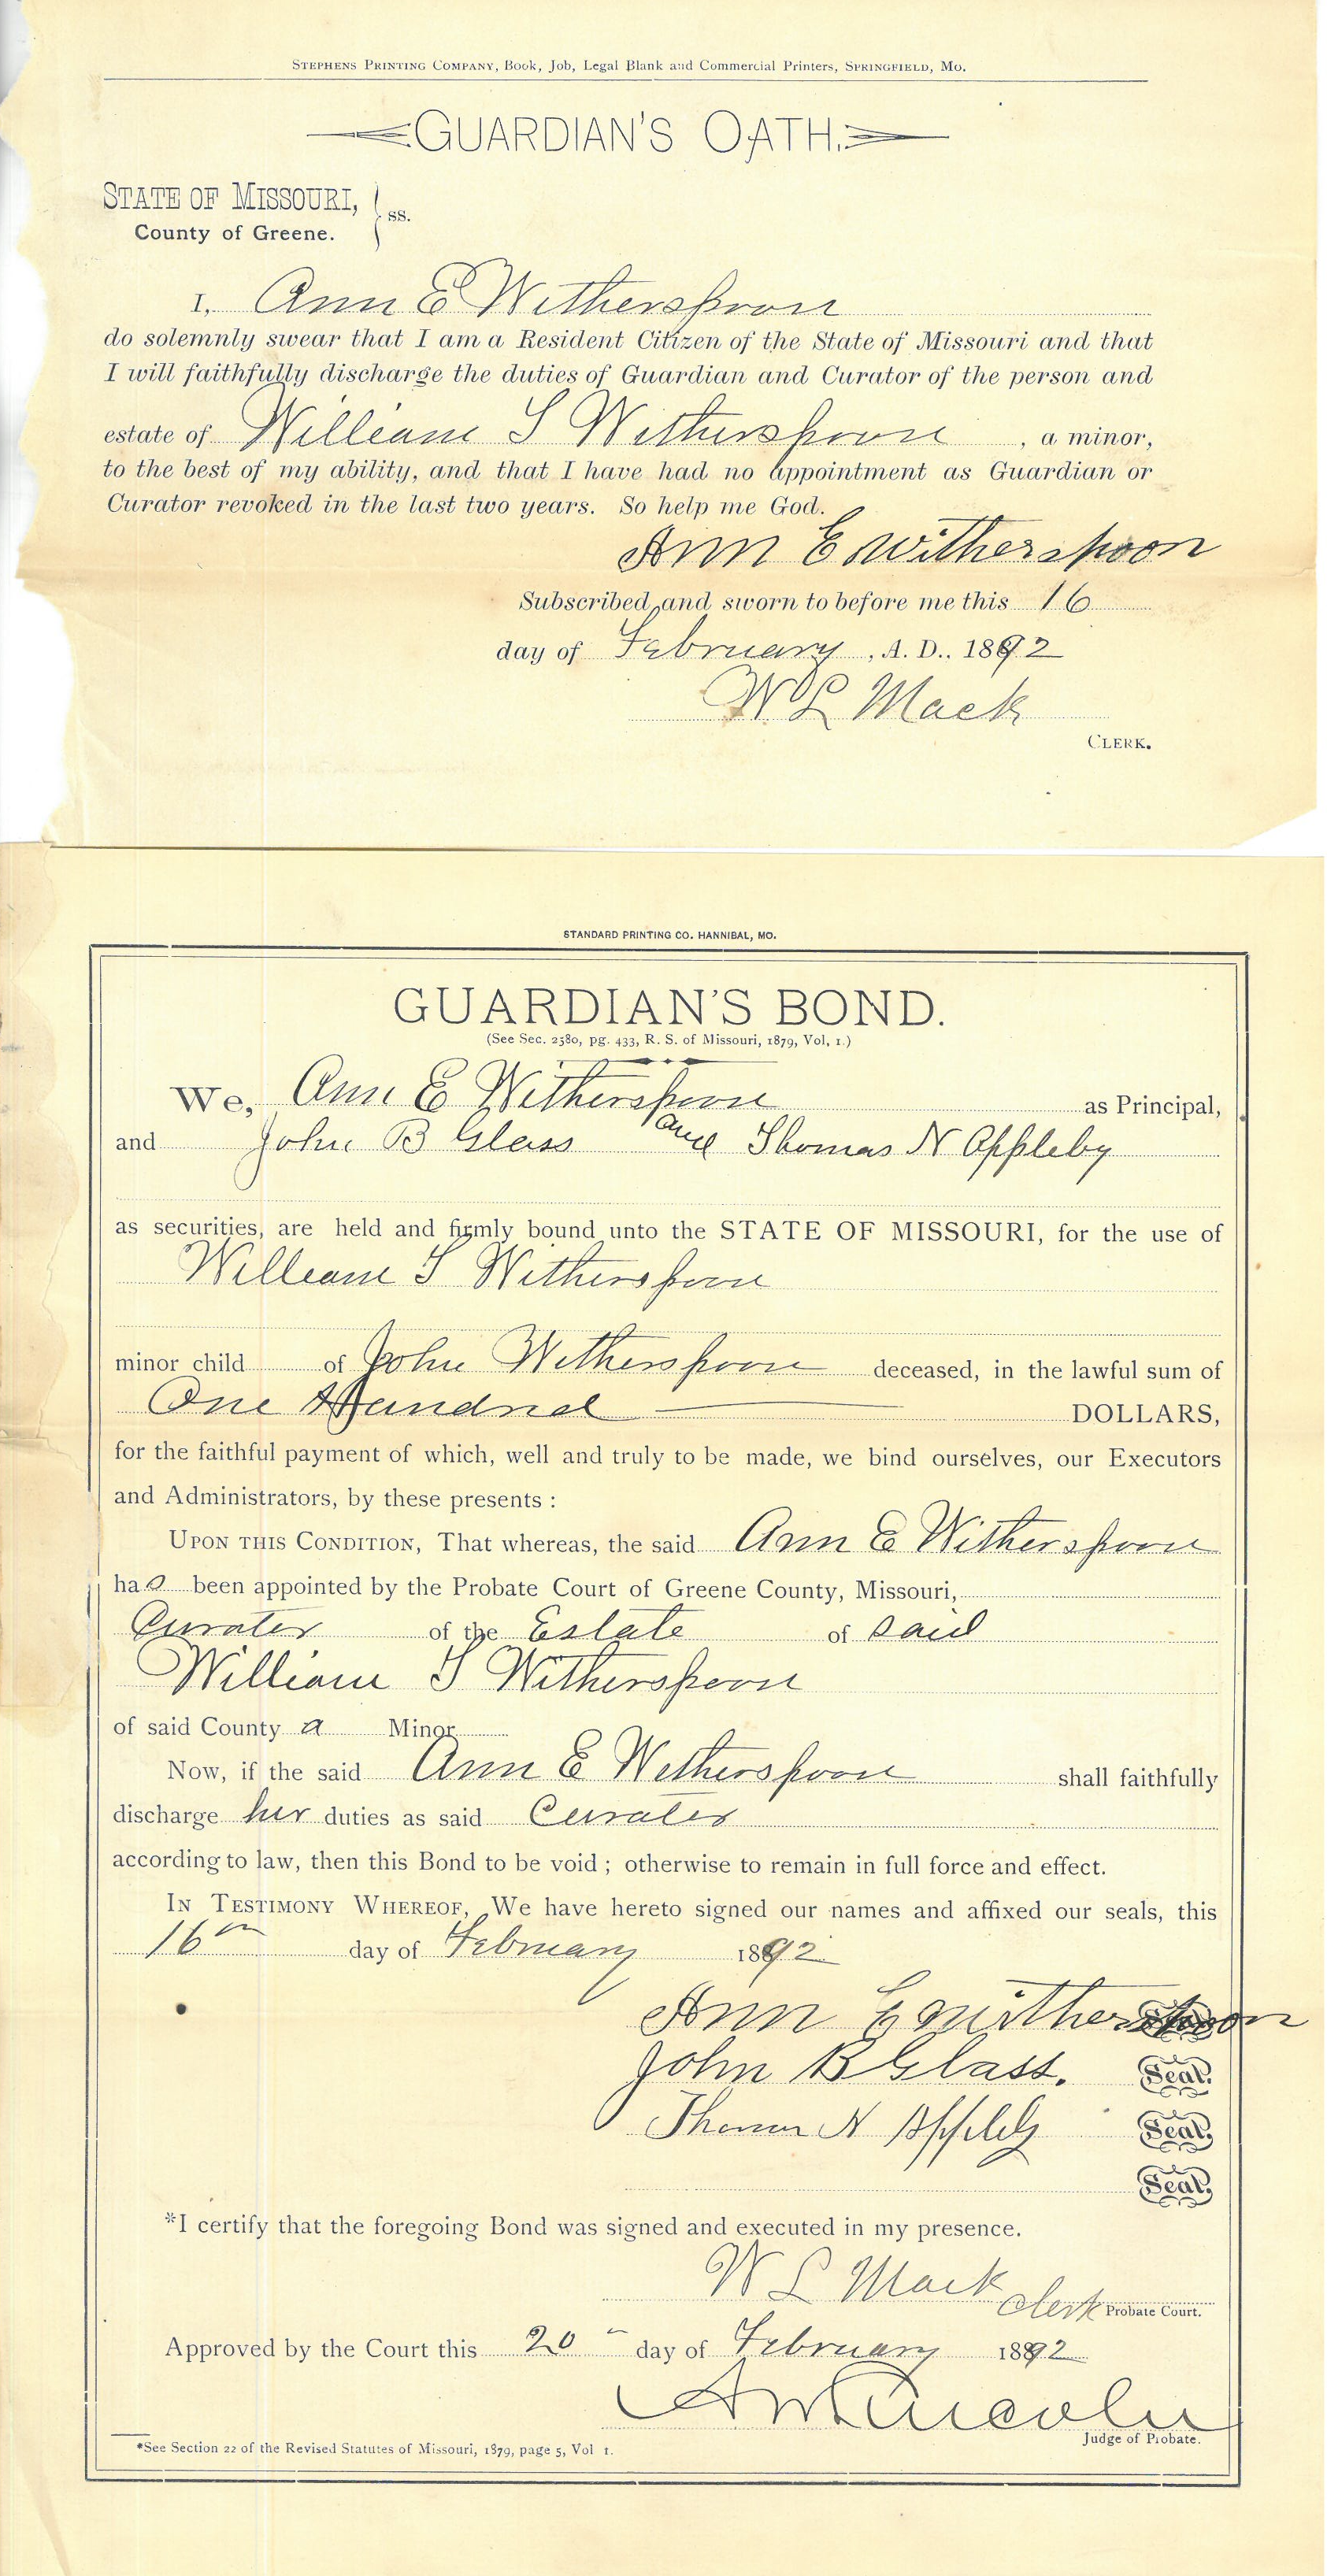 STEPHENS PRINTING COMPANY, Book, Job, Legal Blank and Commercial Printers, SPRINGFIELD, MO.
GUARDIAN'S OATH.
STATE OF MISSOURI, } ss.
County of Greene.
I, Ann E Witherspoon
do solemnly swear that I am a Resident Citizen of the State of Missouri and that
I will faithfully discharge the duties of Guardian and Curator of the person and
estate of William S Witherspoon , a minor,
to the best of my ability, and that I have had no appointment as Guardian or
Curator revoked in the last two years. So help me God.
Ann E Witherspoon
Subscribed and sworn to before me this 16
day of February , A. D., 1892
W L Mack
CLERK.
STANDARD PRINTING CO. HANNIBAL, MO.
GUARDIAN'S BOND.
(See Sec. 2580, pg. 433, R. S. of Missouri, 1879, Vol, 1.)
We, Ann E Witherspoon as Principal,
and John B Glass and Thomas N Appleby
as securities, are held and firmly bound unto the STATE OF MISSOURI, for the use of
William S Witherspoon
minor child of John Witherspoon deceased, in the lawful sum of
One Hundred DOLLARS,
for the faithful payment of which, well and truly to be made, we bind ourselves, our Executors
and Administrators, by these presents :
UPON THIS CONDITION, That whereas, the said Ann E Witherspoon
has been appointed by the Probate Court of Greene County, Missouri,
Curator of the Estate of said
William S Witherspoon
of said County a Minor
Now, if the said Ann E Witherspoon shall faithfully
discharge her duties as said Curator
according to law, then this Bond to be void ; otherwise to remain in full force and effect.
IN TESTIMONY WHEREOF, We have hereto signed our names and affixed our seals, this
16th day of February 1892
Ann E Witherspoon
John B Glass. Seal.
Thomas N Appleby Seal.
Seal.
*I certify that the foregoing Bond was signed and executed in my presence.
W L Mack Clerk Probate Court.
Approved by the Court this 20 day of February 1892
A W Lincoln
Judge of Probate.
*See Section 22 of the Revised Statutes of Missouri, 1879, page 5, Vol 1.